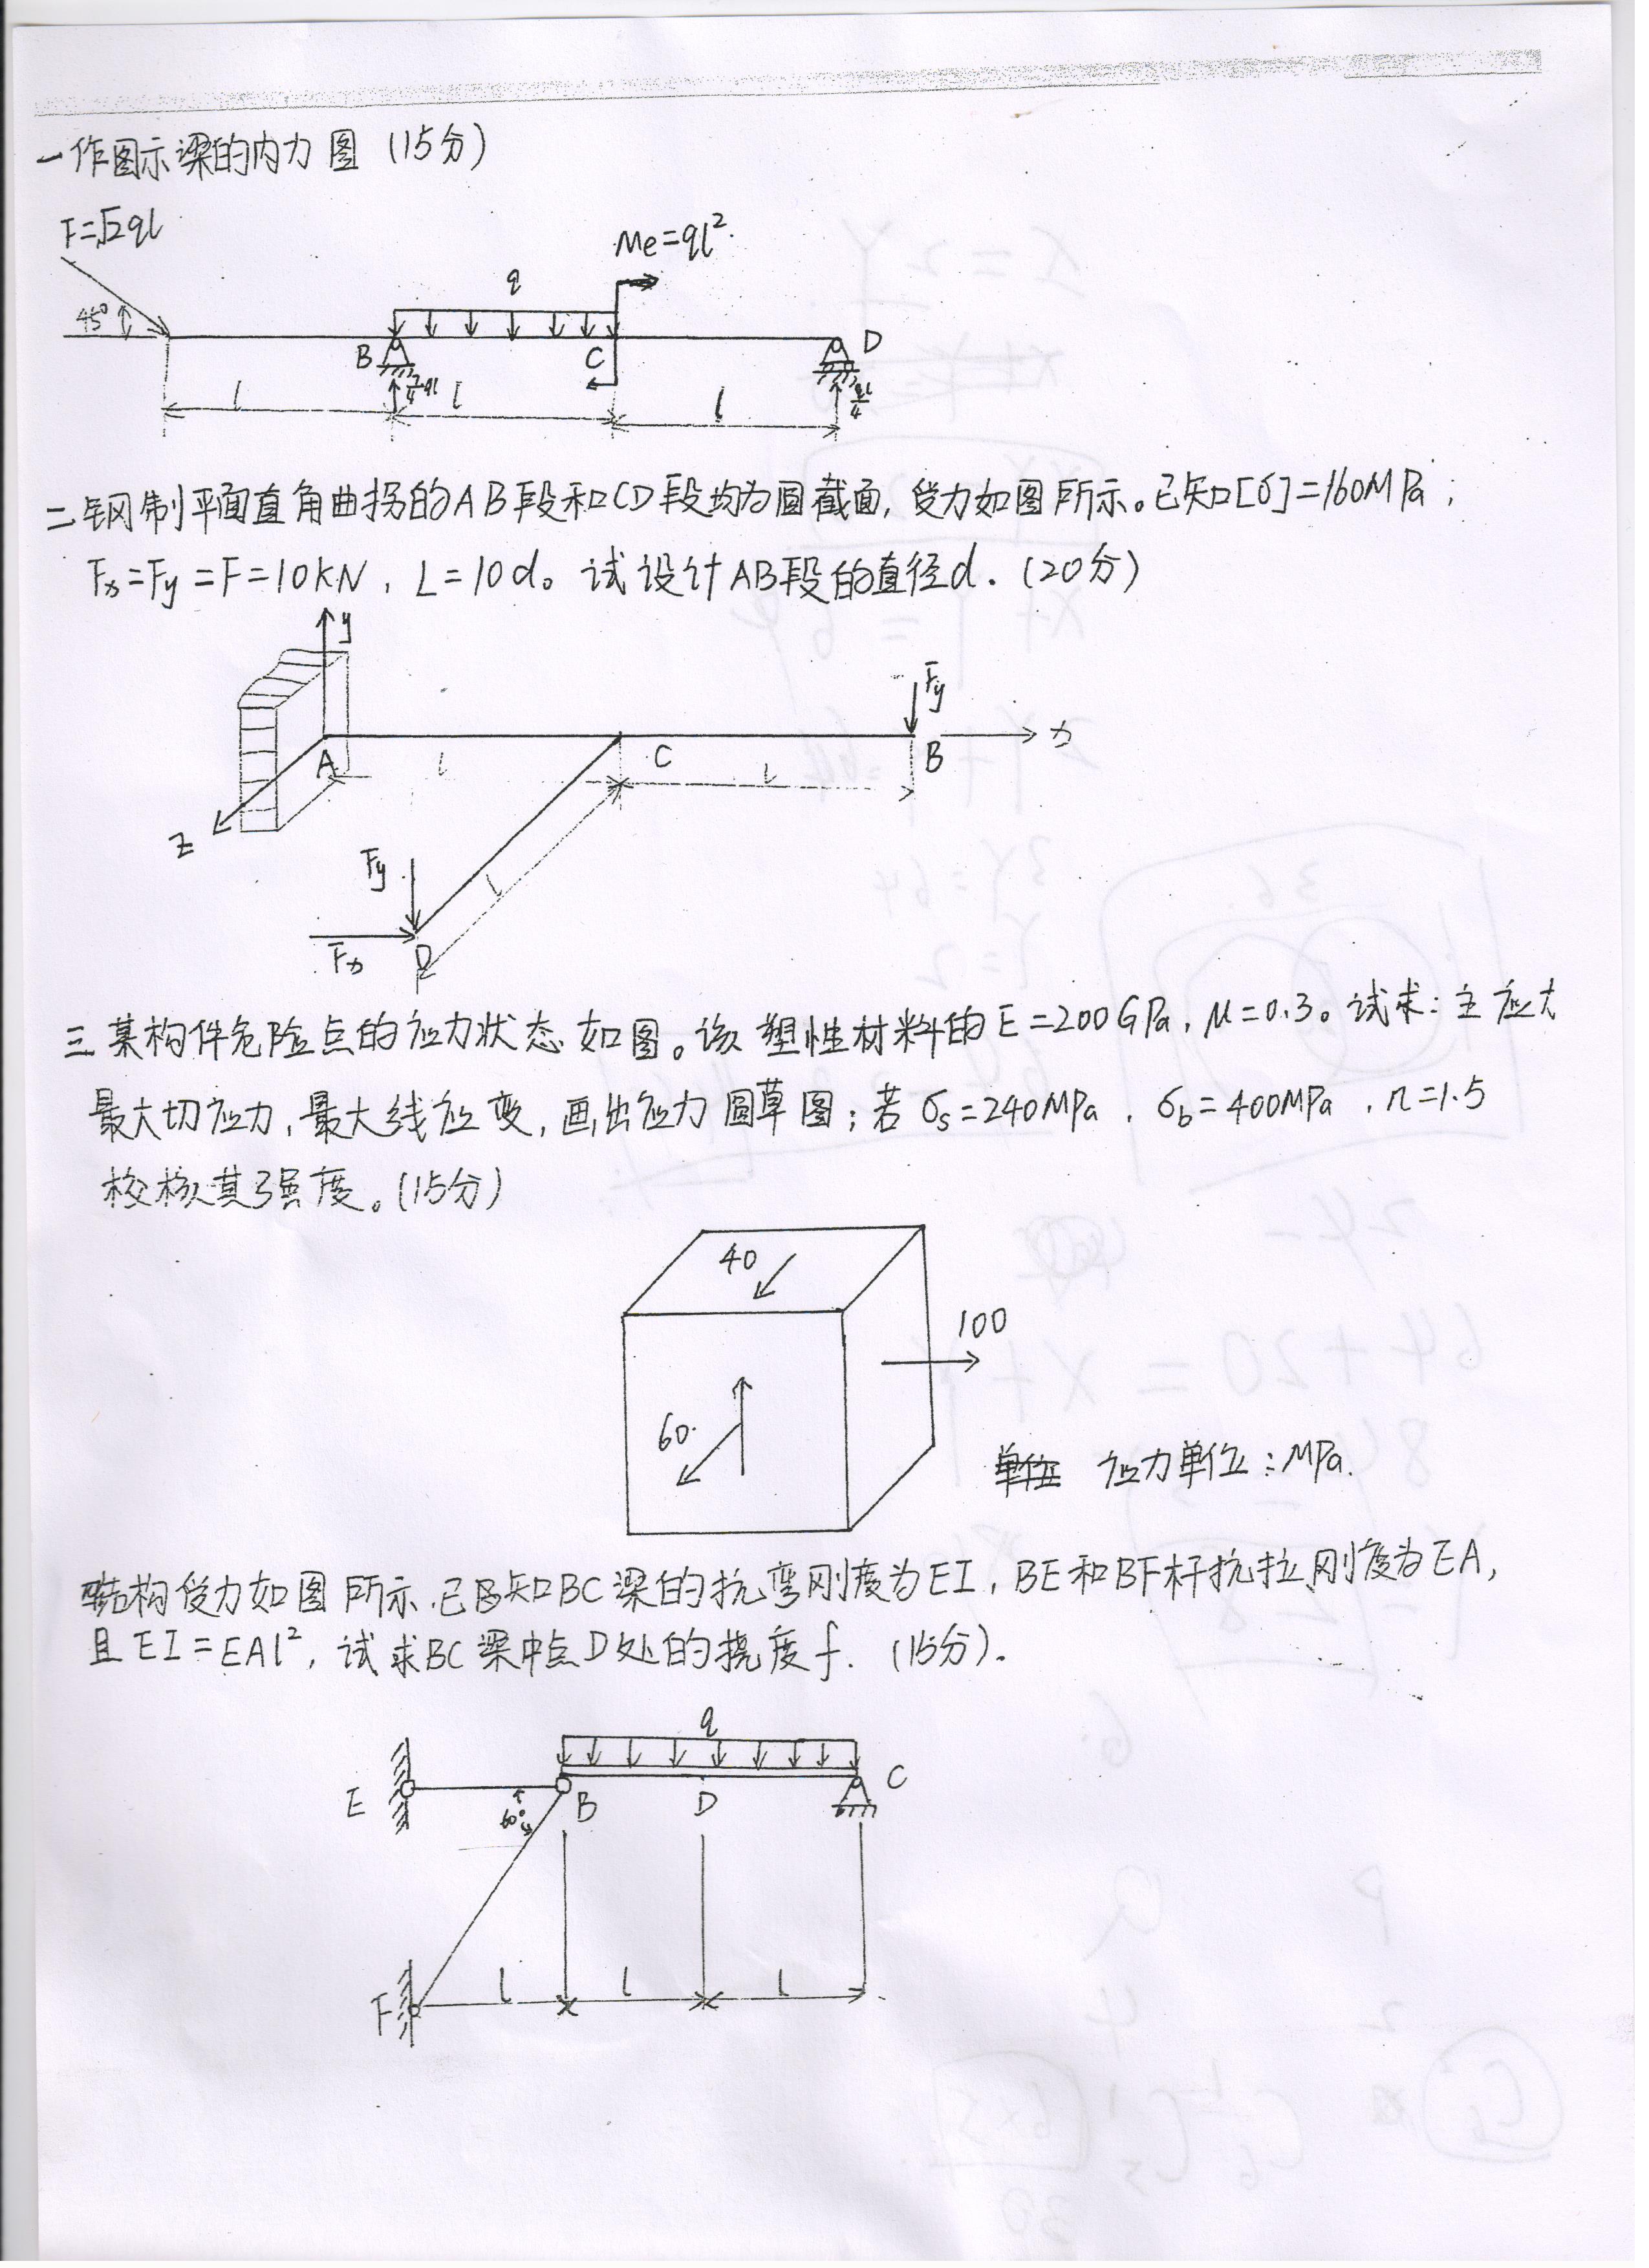 一作图示梁的内力图 (15分)
F=√2ql
Me=ql².
q
45°
B
C
D
7/4ql
ql/4
l
l
l
二钢制平面直角曲拐的AB段和CD段均为圆截面,受力如图所示。已知[σ]=160MPa;
Fx=Fy=F=10kN, L=10d。试设计AB段的直径d. (20分)
y
Fy
A
l
C
l
B
x
z
Fy
l
Fx
D
三某构件危险点的应力状态如图。该塑性材料的E=200GPa, μ=0.3。试求:主应力
最大切应力,最大线应变,画出应力圆草图;若σs=240MPa, σb=400MPa, n=1.5
校核其强度。(15分)
40
100
60
应力单位:MPa.
结构受力如图所示.已知BC梁的抗弯刚度为EI, BE和BF杆抗拉刚度为EA,
且EI=EAl²,试求BC梁中点D处的挠度f. (15分).
q
E
60°
B
D
C
F
l
l
l